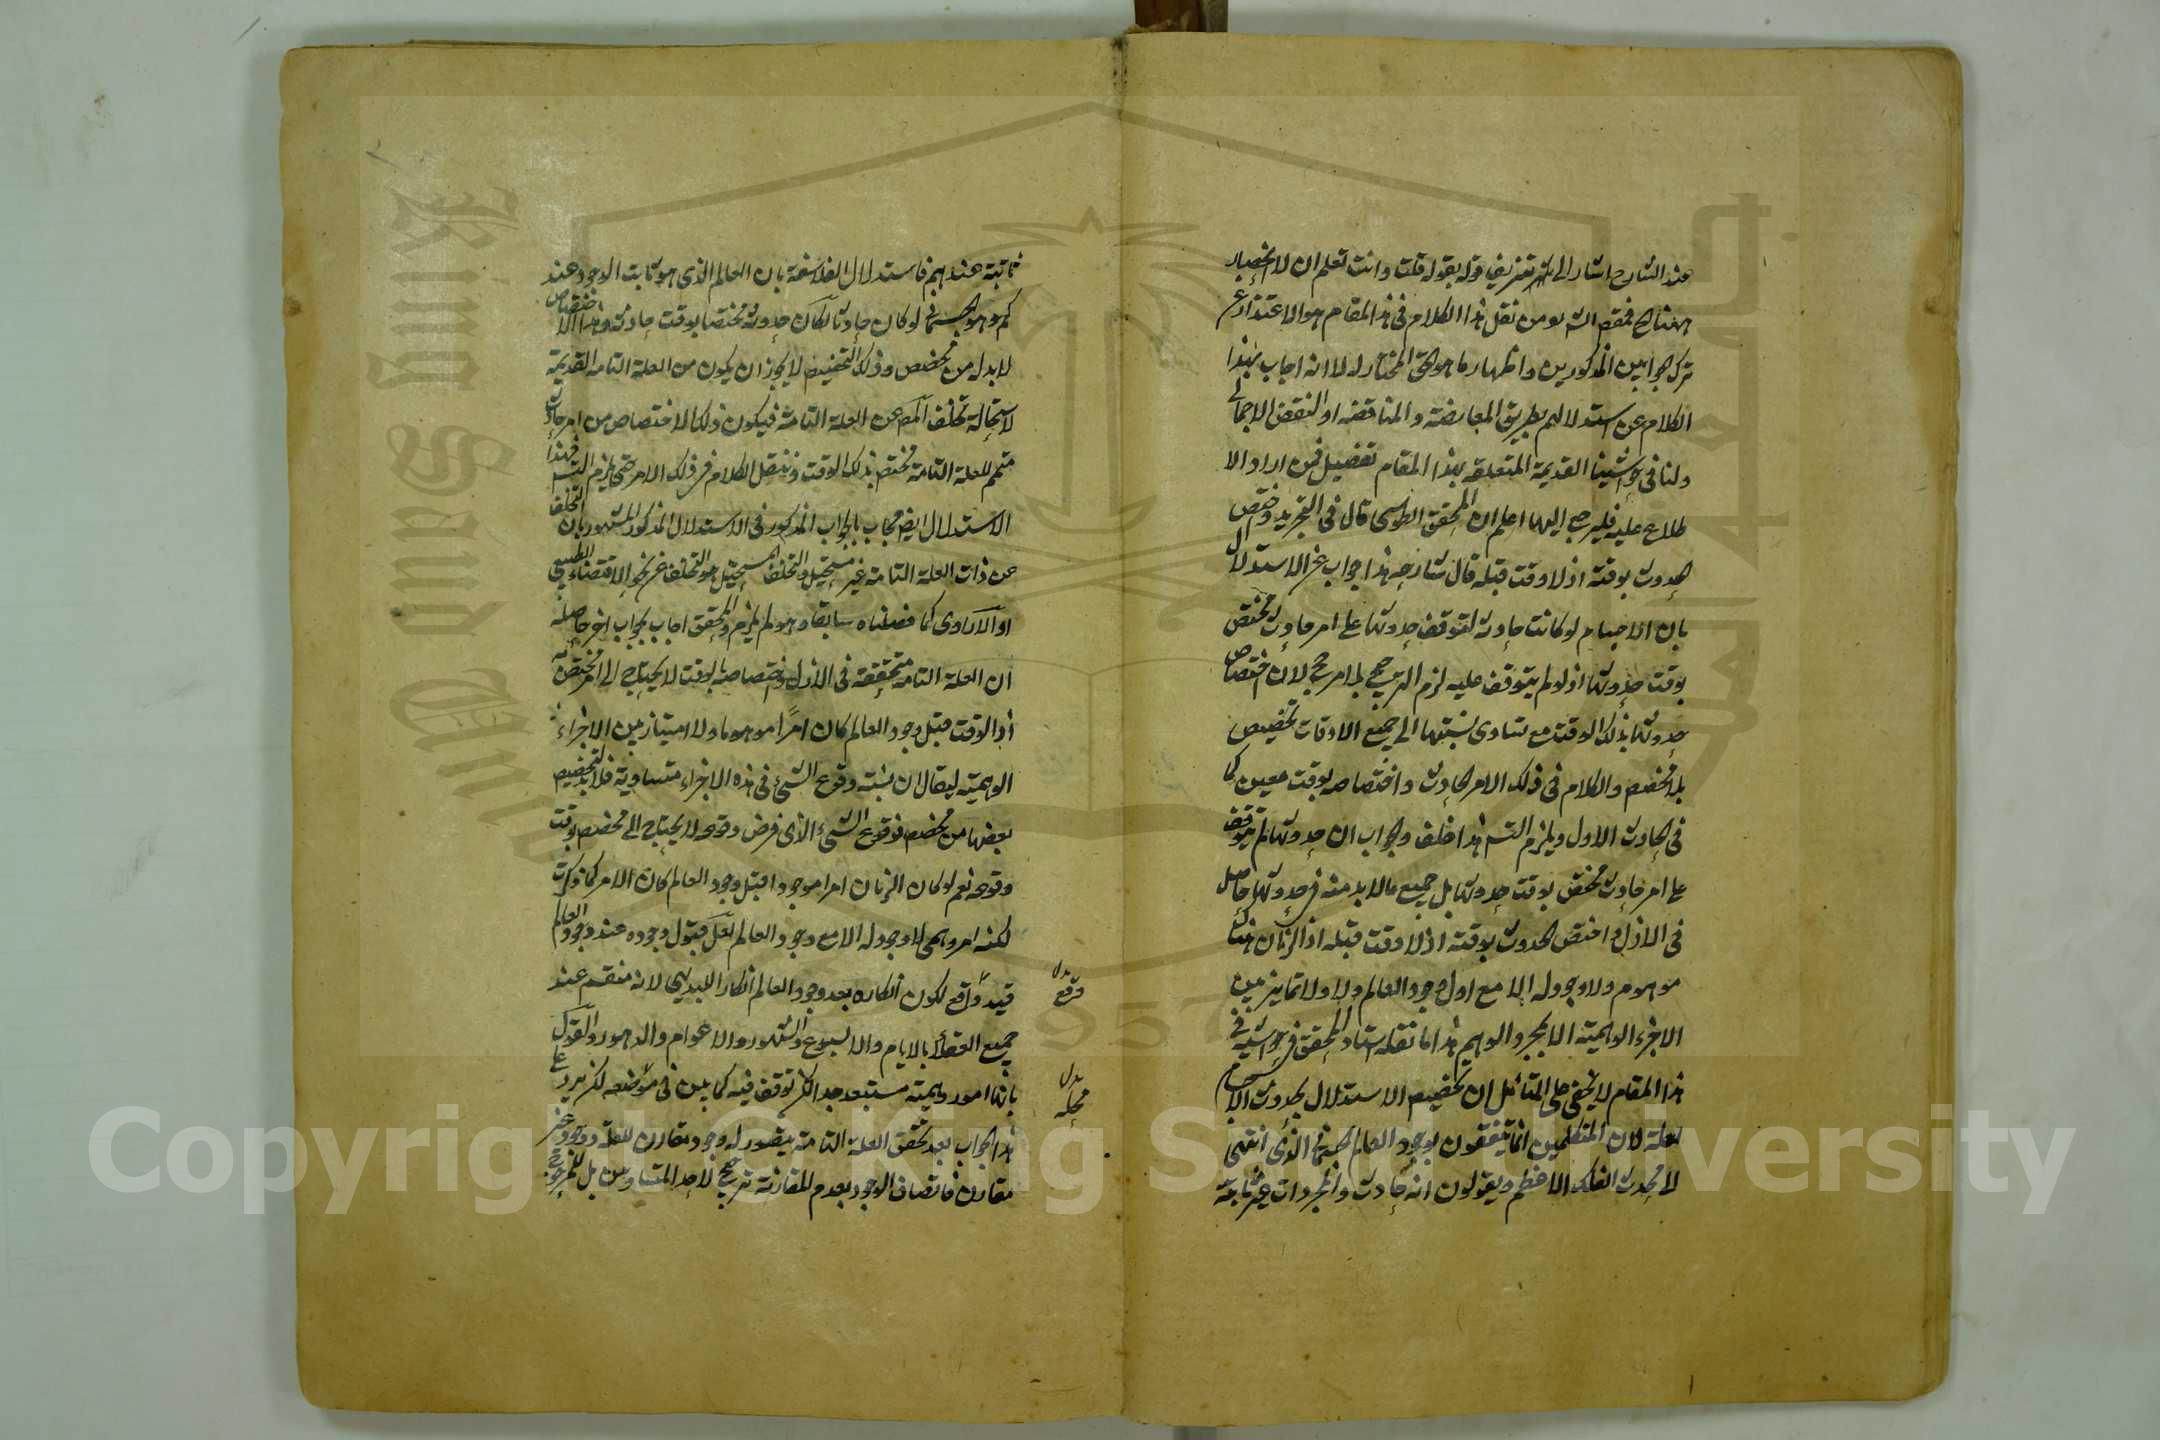 عند الشارح اشار الى تزييف قوله بقوله قلت وانت تعلم ان لا انحصار
ههنا فمقصد الش ومن نقل هذا الكلام فى هذا المقام هو الاعتذار عن
ترك الجوابين المذكورين واظهار ما هو الحق المختار له لا انه اجاب بهذا
الكلام عن استدلالهم بطريق المعارضة والمناقضه او النقض الاجمالى
ولنا فى حواشينا القديمة المتعلقه بهذا المقام تفصيل فمن اراد الا
طلاع عليه فليرجع اليها اعلم ان المحقق الطوسى قال فى التجريد واختص
الحدوث بوقته اذ لا وقت قبله قال شارحه هذا جواب عن الاستدلال
بان الاجسام لو كانت حادثة لتوقف حدوثها على امر حادث مختص
بوقت حدوثها اذ لو لم يتوقف عليه لزم الترجيح بلا مرجح لان اختصاص
حدوثها بذلك الوقت مع تساوى نسبتها الى جميع الاوقات تخصيص
بلا مخصص والكلام فى ذلك الامر الحادث واختصاصه بوقت معين كما
فى الحادث الاول ويلزم التس هذا خلف والجواب ان حدوثها لم يتوقف
على امر حادث مختص بوقت حدوثها بل جميع ما لا بد منه فى حدوثها حاصل
فى الازل واختص الحدوث بوقته اذ لا وقت قبله اذ الزمان هناك
موهوم ولا وجود له الا مع اول وجود العالم ولا تمايز بين
الاجزاء الوهمية الا بمجرد الوهم هذا ما نقله استاد المحقق فى حواشيه فى
هذا المقام لا يخفى على المتأمل ان تخصيص الاستدلال بحدوث الاجسام
لعله لان المتكلمين انما يتفقون بوجود العالم الجسمانى الذى انتهى
الى محدث الفلك الاعظم ويقولون انه حادث والمجردات غير ثابتة
ثابتة عندهم فاستدلال الفلاسفة بان العالم الذى هو ثابت الوجود عند
كم وهو الجسمانى لو كان حادثا لكان حدوثه مختصا بوقت حادث وهذا الاختصاص
لا بد له من مخصص وذلك التخصيص لا يجوز ان يكون من العلة التامة القديمة
لاستحالة تخلف المعلول عن العلة التامة فيكون ذلك الاختصاص من امر حادث
متمم للعلة التامة مختص بذلك الوقت وننقل الكلام فى ذلك الامر حتى يلزم التس فهذا
الاستدلال ايض مجاب بالجواب المذكور فى الاستدلال المذكور المشهور بان التخلف
عن ذات العلة التامة غير مستحيل والتخلف المستحيل هو التخلف عن نحو الاقتضاء الطبيعى
او الارادى كما فصلناه سابقا وهو لم يلزم والمحقق اجاب بجواب اخر حاصله
ان العلة التامة متحققة فى الازل واختصاصه بوقت لا يحتاج الى امر مختص به
اذ الوقت قبل وجود العالم كان امرًا موهوما ولا امتياز بين الاجزاء
الوهمية ليقال ان نسبة وقوع الشئ فى هذه الاجزاء متساوية فلا بد لتخصيص
بعضها من مخصص فوقوع الشئ الذى فرض وقوعه لا يحتاج الى مخصص بوقت
وقوعه نعم لو كان الزمان امرا موجودا قبل وجود العالم كان الامر كما ذكرت
لكنه امر وهمى لا وجود له الا مع وجود العالم لعل قبول وجوده عند وجود العالم
قيد واقع لكون انكاره بعد وجود العالم انكار البديهى لانه منقسم عند
جميع العقلاء بالايام والاسبوع والشهور والاعوام والدهور والقول
بانها امور وهمية مستبعد جدا لكن توقف فيه كما بين فى موضعه لكن يرد على
هذا الجواب بعد تحقق العلة التامة يتصور له وجود مقارن للعلة ووجود غير
مقارن فاتصاف الوجود بعدم المقارنة ترجيح لاحد المتساويين بل للمرجوح
بدل
فرقع
بدل
محله